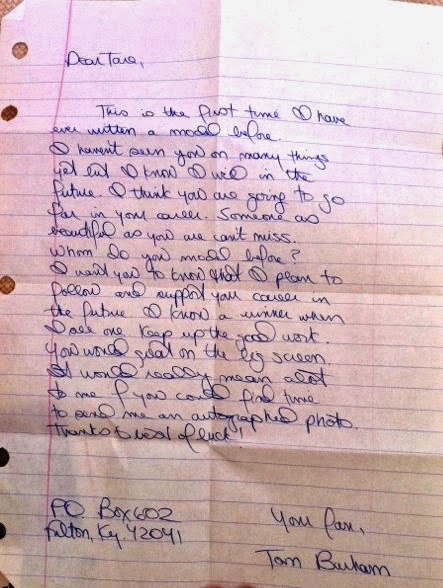 Dear Tara,
This is the first time I have
ever written a model before.
I haven't seen you on many things
yet but I know I will in the
future. I think you are going to go
far in your career. Someone as
beautiful as you are can't miss.
Whom do you model before?
I want you to know that I plan to
follow and support your career in
the future I know a winner when
I see one Keep up the good work.
You would great on the big screen
It would really mean alot
to me if you could find time
to send me an autographed photo.
Thanks & best of luck!
P.O. Box 602
Fulton, Ky. 42041
Your fan,
Tom Burham